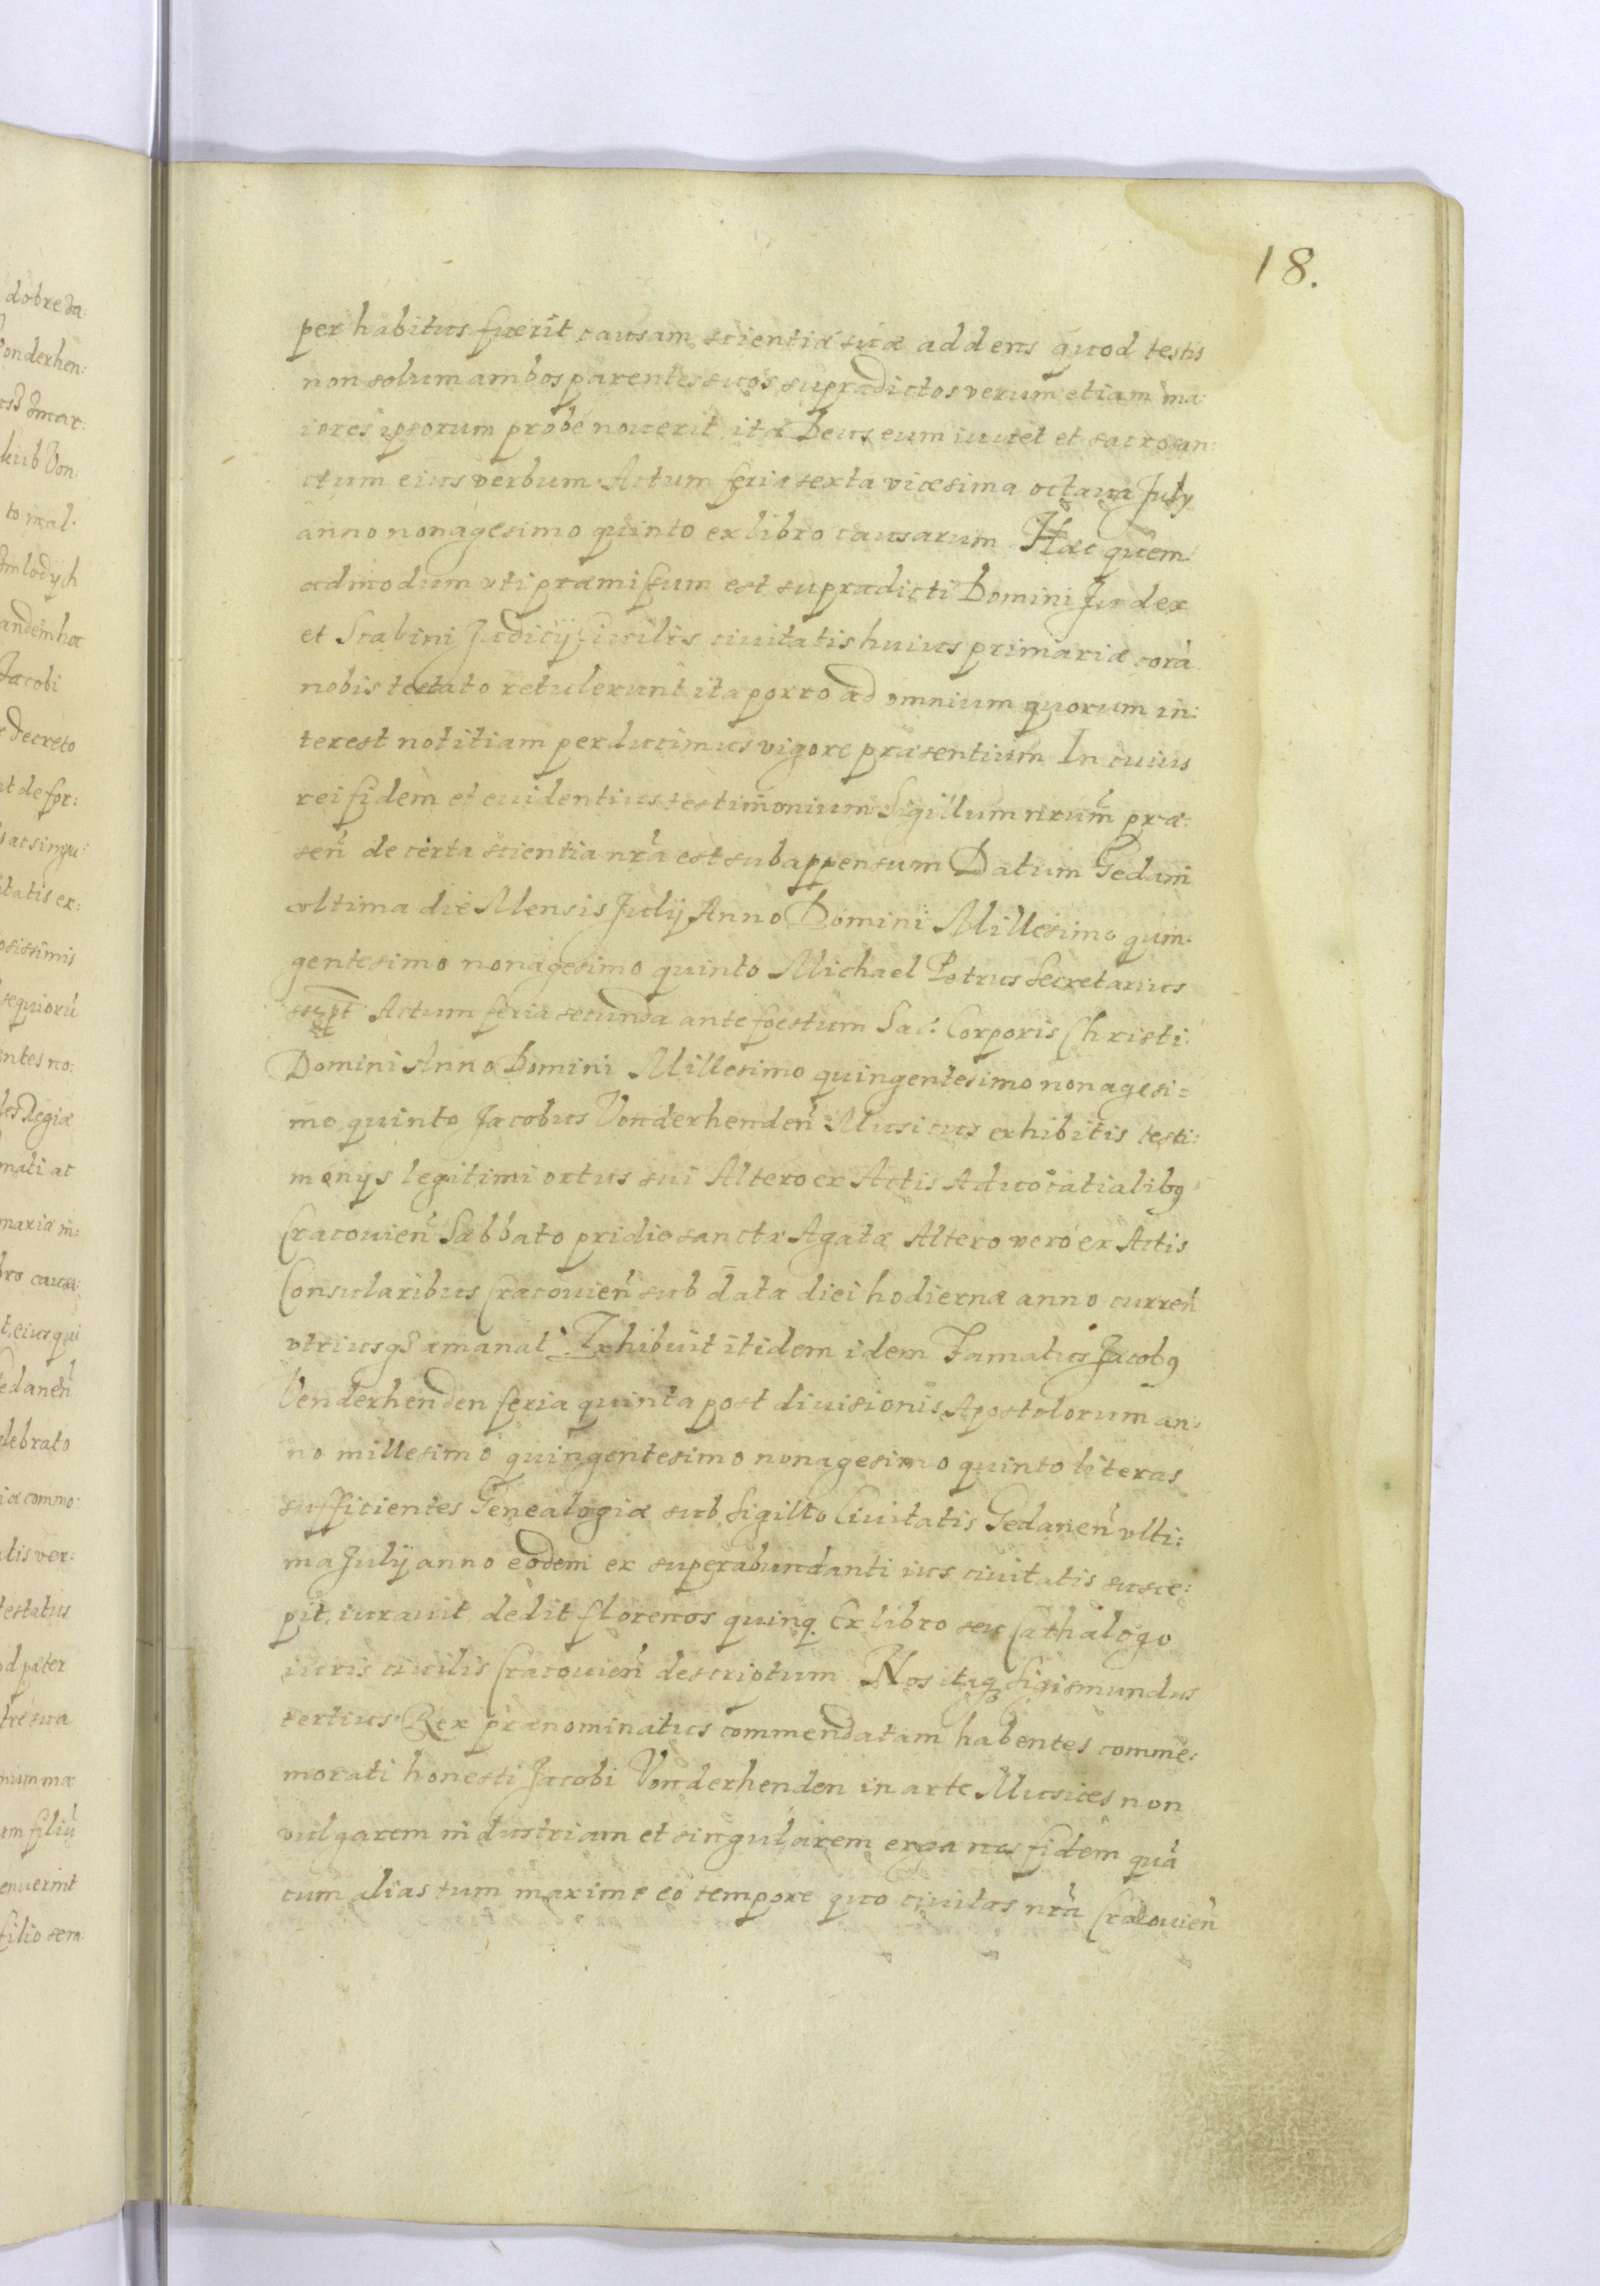 18.
per habitus fuerit causam scientiæ suæ addens quod testis
non solum ambos parentes suos supradictos verum etiam ma:
iores ipsorum probe nouerit ita Deus eum iuuet et sacrosan:
ctum eius verbum Actum feria sexta vicesima octaua July
anno nonagesimo quinto ex libro causarum Hæc quem
admodum vti præmissum est supradicti Domini Judex
et Scabini Judicij Ciuilis ciuitatis huius primariæ corã
nobis testato retulerunt ita porro ad omnium quorum in:
terest notitiam perducimus vigore præsentium In cuius
rei fidem et euidentius testimonium Sigillum nrum præ:
sen de certa scientia nra est subappensum Datum Gedani
vltima die Mensis Julij Anno Domini Millesimo quin:
gentesimo nonagesimo quinto Michael Petrus Secretarius
supt Actum feria secunda ante foestum Sac: Corporis Christi
Domini Anno Domini Millesimo quingentesimo nonagesi=
mo quinto Jacobus Vonderhenden Musicus exhibitis testi:
monijs legitimi ortus sui Altero ex Actis Aduocatialibg
Cracouien Sabbato pridie sanctæ Agatæ Altero vero ex Actis
Consularibus Cracouien sub data diei hodiernæ anno curren
vtriusq emanat Exhibuit itidem idem Famatus Jacobg
Venderhenden feria quinta post diuisionis Apostolorum an:
no millesimo quingentesimo nonagesimo quinto literas
sufficientes Genealogiæ sub sigillo Ciuitatis Gedanen vlti:
ma Julij anno eodem ex superabundanti ius ciuitatis susce:
pit, iurauit dedit florenos quinq. Ex libro seu Cathalogo
iuris ciuilis Cracouien descriptum Nos itaq Sigismundus
tertius Rex prænominatus commendatam habentes comme:
morati honesti Jacobi Vonderhenden in arte Musices non
vulgarem industriam et singularem erga nos fidem quã
cum alias tum maxime eo tempore quo ciuitas nra Cracouien